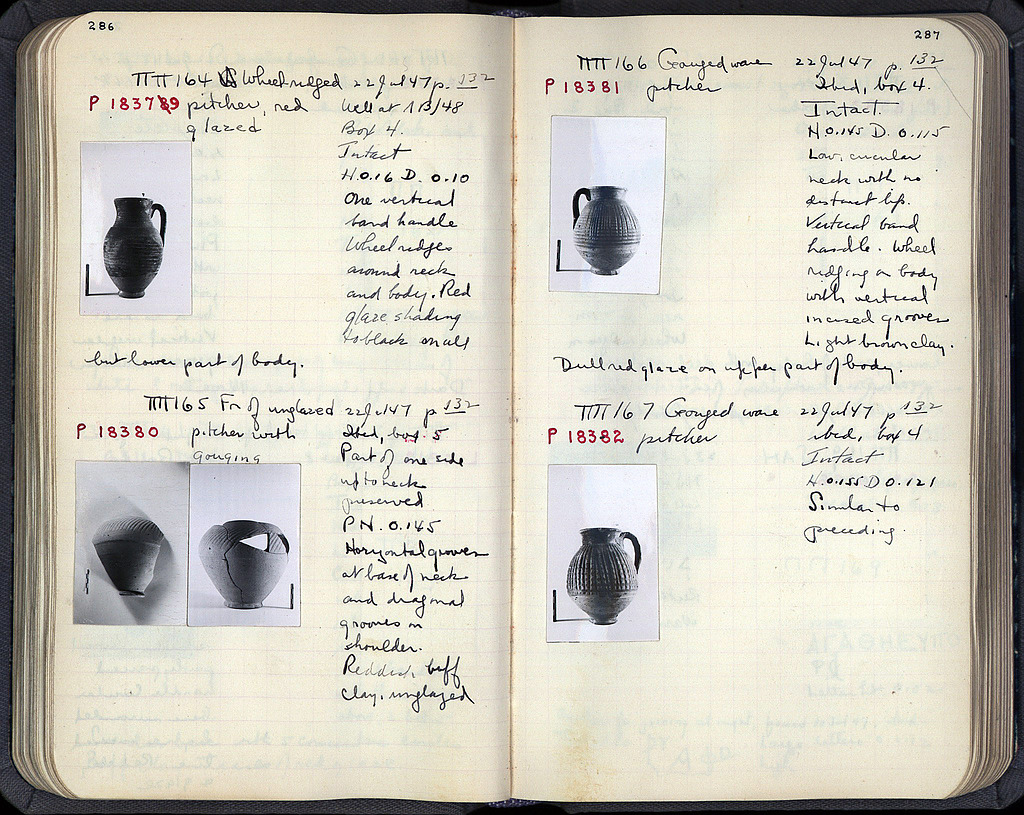 286
ΠΠ 164 Wheelridged 22 Jul 47 p. 132
P 18379 pitcher, red Well at 113/48
glazed Box 4.
Intact
H. 0.16 D. 0.10
One vertical
band handle
Wheelridges
around neck
and body. Red
glaze shading
to black on all
but lower part of body.
ΠΠ 165 Fr of unglazed 22 Jul 47 p 132
P 18380 pitcher with Ibid, box 5
gouging Part of one side
up to neck
preserved
P.H. 0.145
Horizontal grooves
at base of neck
and diagonal
grooves on
shoulder.
Reddish buff
clay, unglazed
287
ΠΠ 166 Gouged ware 22 Jul 47 p. 132
P 18381 pitcher Ibid, box 4.
Intact.
H 0.145 D. 0.115
Low, circular
neck with no
distinct lip.
Vertical band
handle. Wheel
ridging on body
with vertical
incised grooves
Light brown clay.
Dull red glaze on upper part of body.
ΠΠ 167 Gouged ware 22 Jul 47 p 132
P 18382 pitcher ibid, box 4
Intact
H. 0.155 D 0.121
Similar to
preceding.